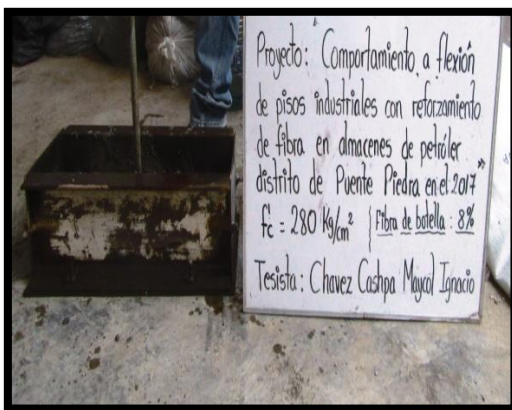 Proyecto: "Comportamiento a flexión
de pisos industriales con reforzamiento
de fibra en almacenes de petróler
distrito de Puente Piedra en el 2017"
f'c = 280 kg/cm² Fibra de botella: 8%
Tesista: Chavez Cashpa Maycol Ignacio